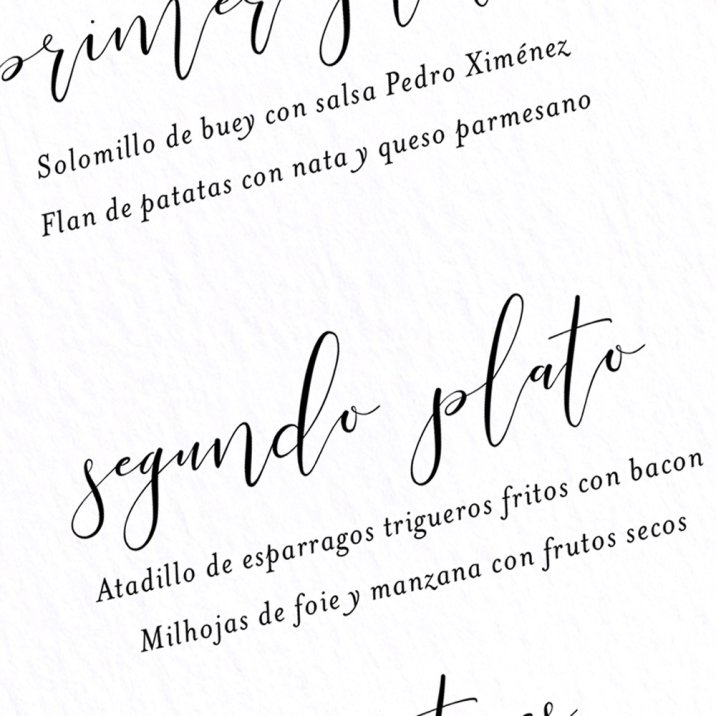 primer
Solomillo de buey con salsa Pedro Ximénez
Flan de patatas con nata y queso parmesano
segundo plato
Atadillo de esparragos trigueros fritos con bacon
Milhojas de foie y manzana con frutos secos